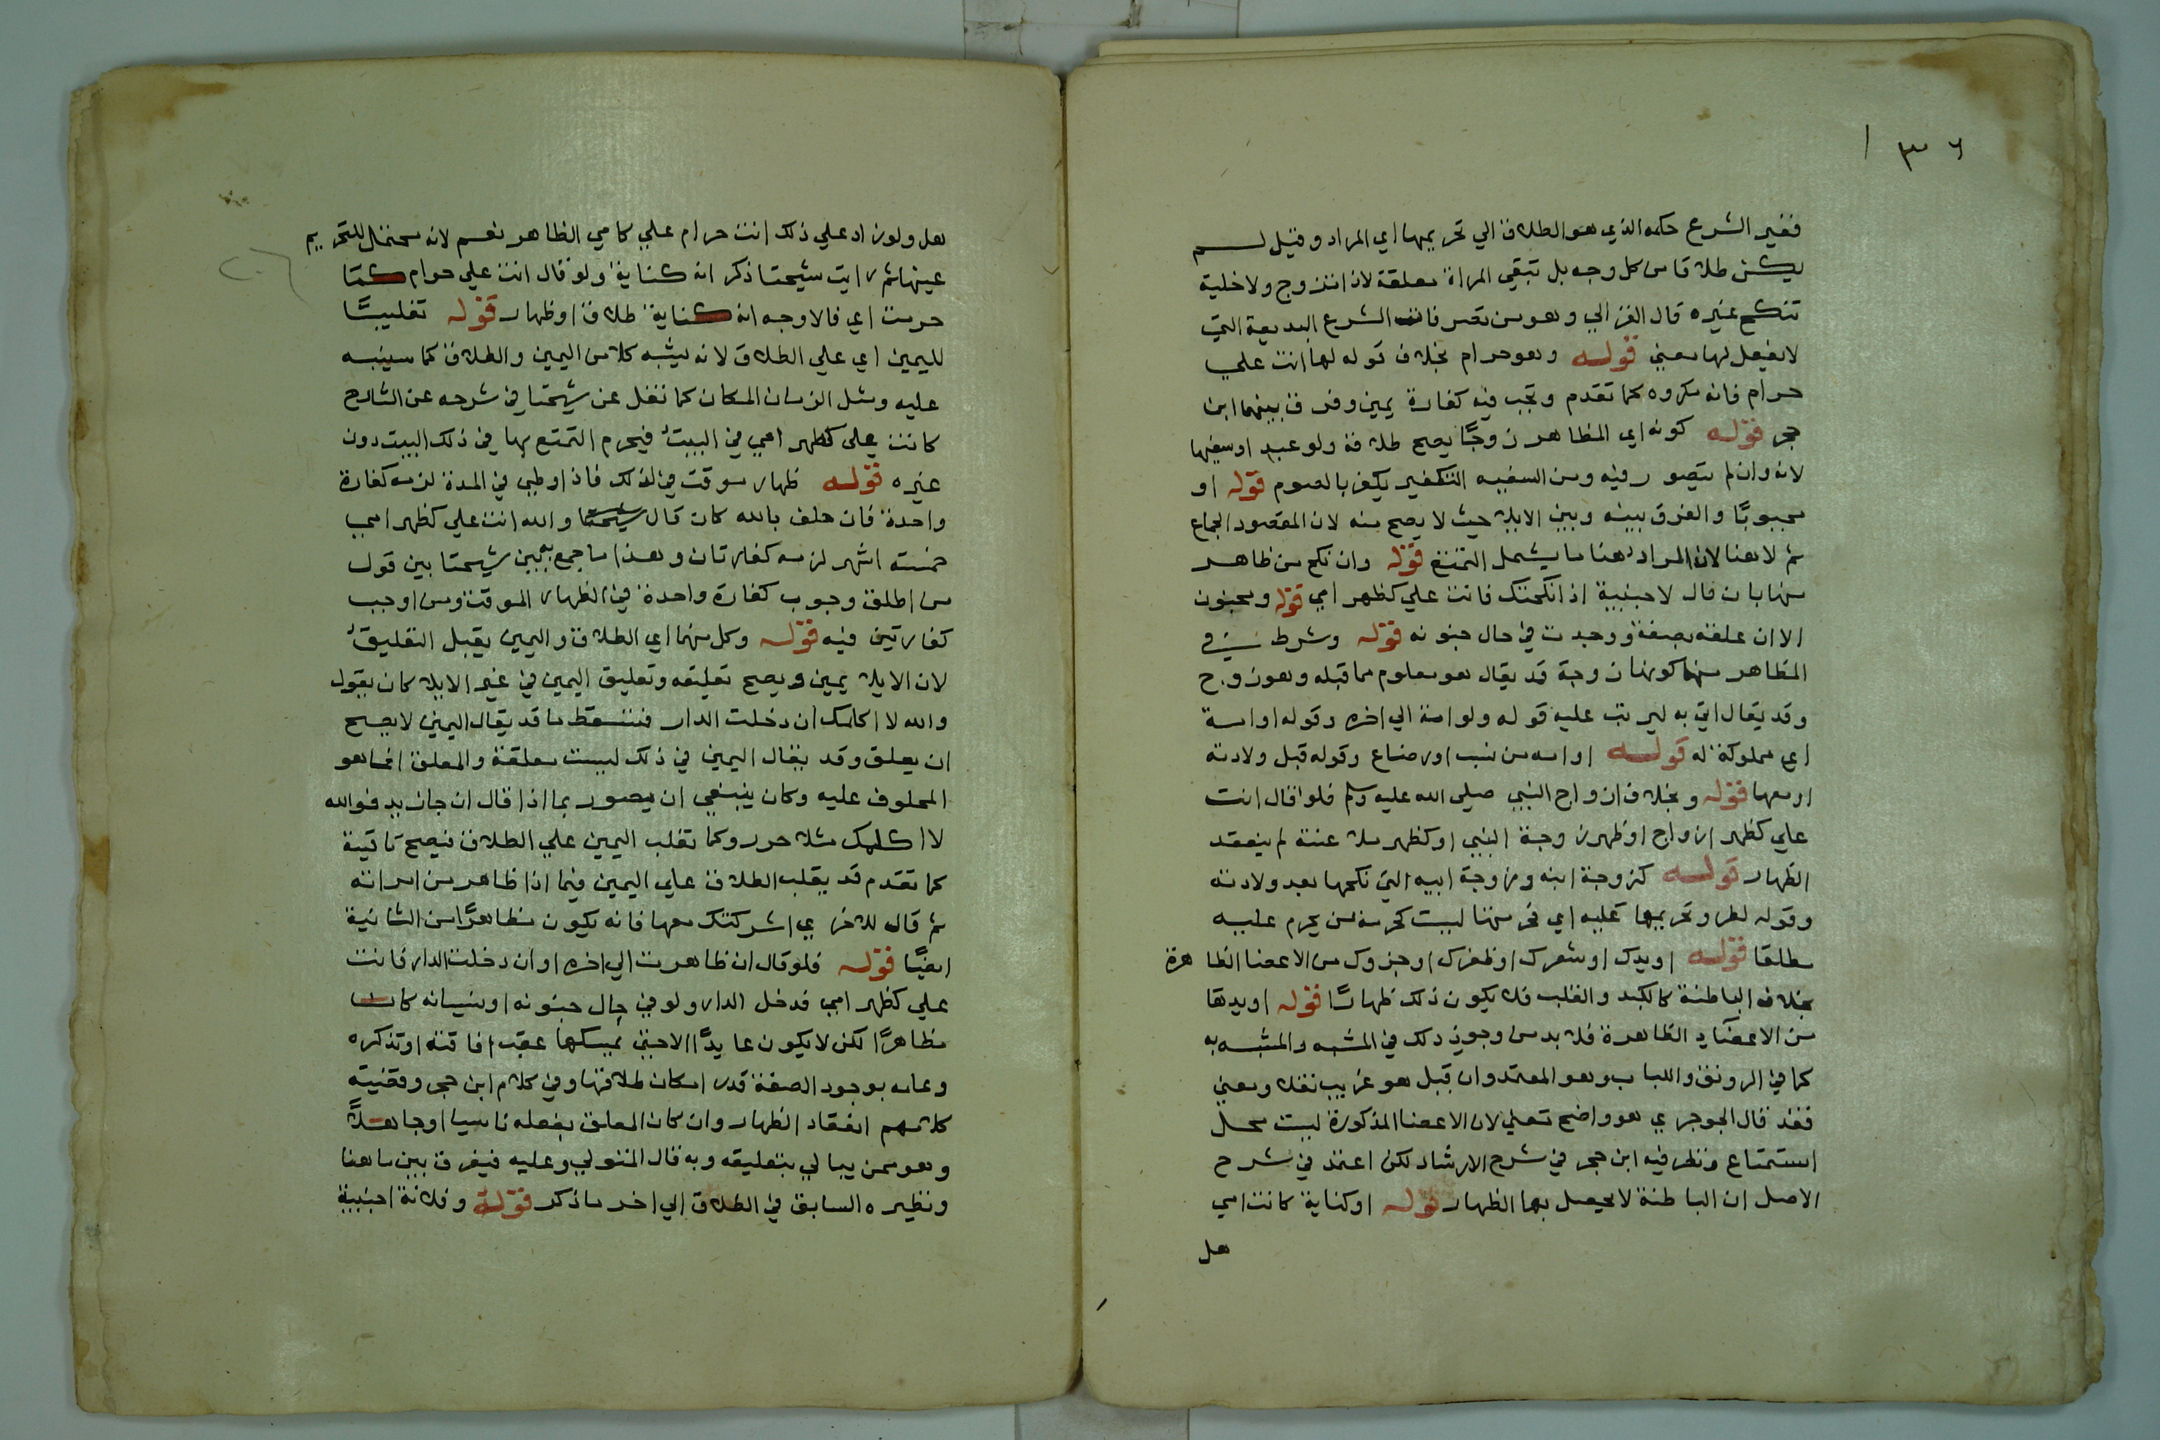 ١٣٦
فغير الشرع حكمه الذي هو الطلاق الي تحريمها اي المراد وقيل لم
يكن طلاقا من كل وجه بل تبقي المراة معلقة لا ذات زوج ولا خلية
تنكح غيره قال الغزالي وهو من الشرع البديعة التي
لا يعقل لها معني قوله وهو حرام بخلاف قوله لها انت علي
حرام فانه مكروه كما تقدم وتجب فيه كفارة يمين وفرق بينهما ابن
حجر قوله كونه اي المظاهر زوجًا يصح طلاقه ولو عبد او سفيها
لانه وان لم يتصور فيه ومن السفيه التكفير يكفر بالصوم قوله او
مجبوبًا والفرق بينه وبين الايلا حيث لا يصح منه لان المقصود الجماع
ثم لا هنا لان المراد هنا ما يشمل التمتع قوله وان نكح من ظاهر
منها بان قال لاجنبية اذا نكحتك فانت علي كظهر امي قوله ومجنون
الا ان علقه بصفة ووجدت في حال جنونه قوله وشرط في
المظاهر منها كونها زوجة قد يقال هو معلوم مما قبله وهو زوج
وقد يقال اتي به ليرتب عليه قوله ولو امة الي اخره وقوله او امة
اي مملوكة له قوله او امه من نسب او رضاع وقوله قبل ولادته
او معها قوله وبخلاف ازواج النبي صلي الله عليه وسلم فلو قال انت
علي كظهر ازواج او ظهر زوجة النبي او كظهر ملاعنة لم ينعقد
الظهار قوله كزوجة ابنه وزوجة ابيه التي نكحها بعد ولادته
وقوله لطرو تحريمها عليه اي فحرمتها ليست كحرمة من يحرم عليه
مطلقا قوله او يدك او شعرك او ظفرك او جزوك من الاعضا الظاهرة
بخلاف الباطنة كالكبد والقلب فلا يكون ذلك ظهارًا قوله او يدها
من الاعضاء الظاهرة فلا بد من وجود ذلك في المشبه والمشبه به
كما في الرونق واللباب وهو المعتمد وان قيل هو غريب نقلا ومعني
فقد قال الجوجري هو واضح تعليلا لان الاعضا المذكورة ليست محل
استمتاع ونظر فيه ابن حجر في شرح الارشاد لكن اعتمد في شرح
الاصل ان الباطنة لا يحصل بها الظهار قوله او كناية كانت امي
هل
هل ولو زاد علي ذلك انت حرام علي كامي الظاهر نعم لانه محتمل للتحريم
عينها ثم رايت شيخنا ذكر انه كناية ولو قال انت علي حرام كما
حرمت امي فالاوجه انه كناية طلاق او ظهار قوله تغليبًا
لليمين اي علي الطلاق لانه يشبه كلا من اليمين والطلاق كما سينبه
عليه ومثل الزمان المكان كما نقل عن شيخنا في شرحه عن الشارح
كانت علي كظهر امي في البيت فيحرم التمتع بها في ذلك البيت دون
غيره قوله ظهار موقت في ذلك فاذا وطي في المدة لزمه كفارة
واحدة فان حلف بالله كان قال شيخنا والله انت علي كظهر امي
خمسة اشهر لزمه كفارتان وهذا ما جمع به شيخنا بين قول
من اطلق وجوب كفارة واحدة في الظهار الموقت ومن اوجب
كفارتين فيه قوله وكل منهما اي الطلاق واليمين يقبل التعليق
لان الايلا يمين ويصح تعليقه وتعليق اليمين في غير الايلا كان يقول
والله لا اكلمك ان دخلت الدار فسقط ما قد يقال اليمين لا يصح
ان يعلق وقد يقال اليمين في ذلك ليست معلقة والمعلق انما هو
المحلوف عليه وكان ينبغي ان يصور بما اذا قال ان جا زيد فوالله
لا اكلمك مثلا حرر وكما تغلب اليمين علي الطلاق فيصح تاقيته
كما تقدم قد يغلب الطلاق علي اليمين فيما اذا ظاهر من امراته
ثم قال للاخري اشركتك معها فانه يكون مظاهرًا من الثانية
ايضًا قوله فلو قال ان ظاهرت الي اخره او ان دخلت الدار فانت
علي كظهر امي فدخل الدار ولو في حال جنونه او نسيانه كان
مظاهرًا لكن لا يكون عايدًا الا حتي يمسكها عقب افاقته او تذكره
وعلمه بوجود الصفة قدر امكان طلاقها وفي كلام ابن حجر وقضية
كلامهم انعقاد الظهار وان كان المعلق بفعله ناسيا او جاهلًا
وهو ممن يبالي بتعليقه وبه قال المتولي وعليه فيفرق بين ما هنا
ونظيره السابق في الطلاق الي اخر ما ذكر قوله وفلانة اجنبية